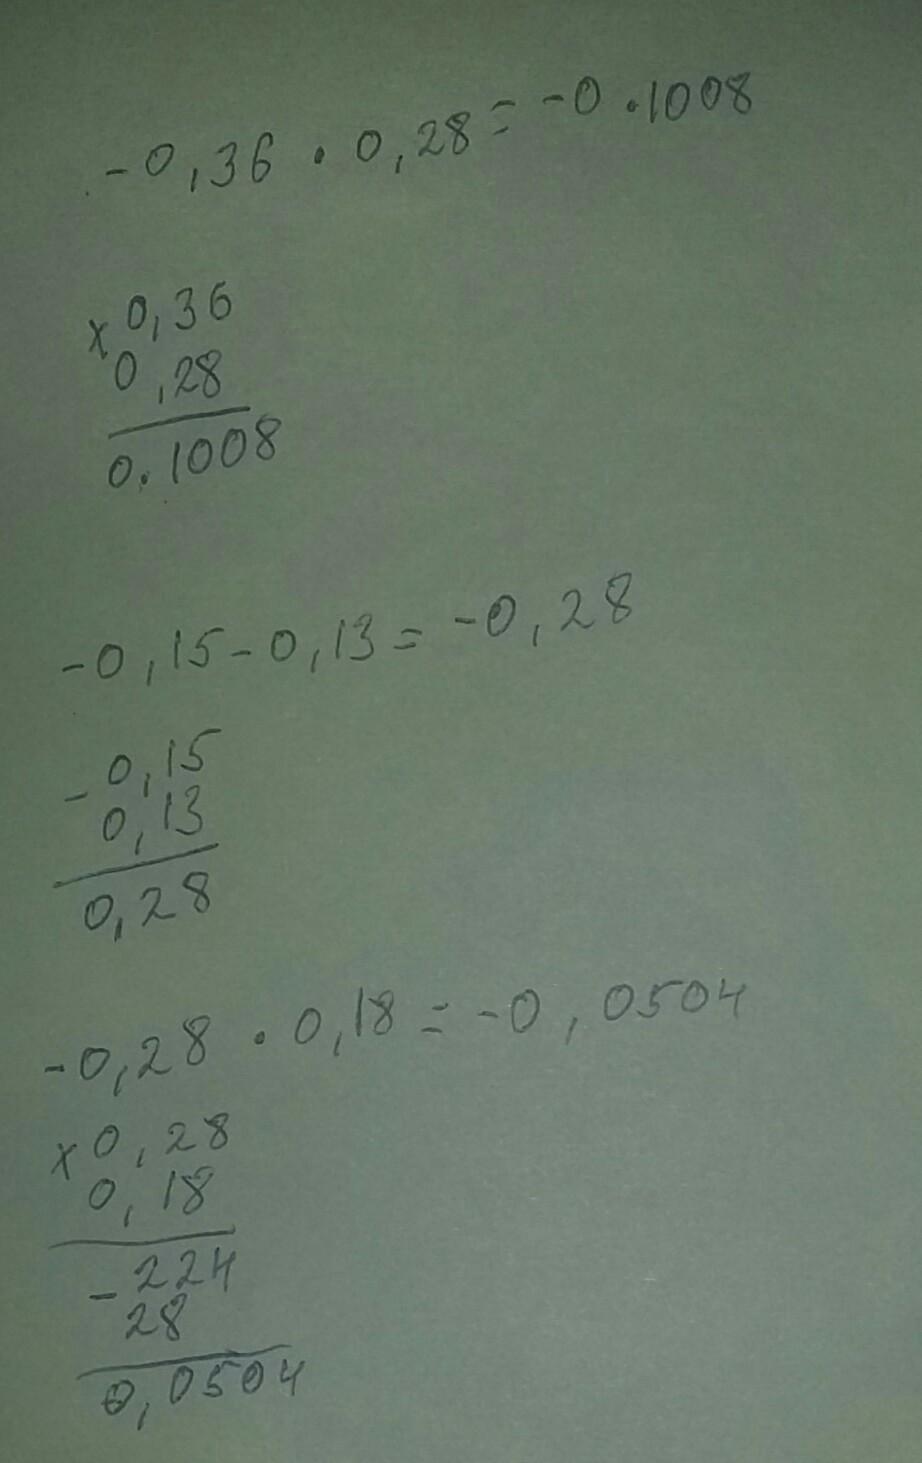 -0,36 · 0,28 = -0.1008
x 0,36
0,28
0.1008
-0,15-0,13 = -0,28
- 0,15
0,13
0,28
-0,28 · 0,18 = -0,0504
x 0,28
0,18
- 224
28
0,0504